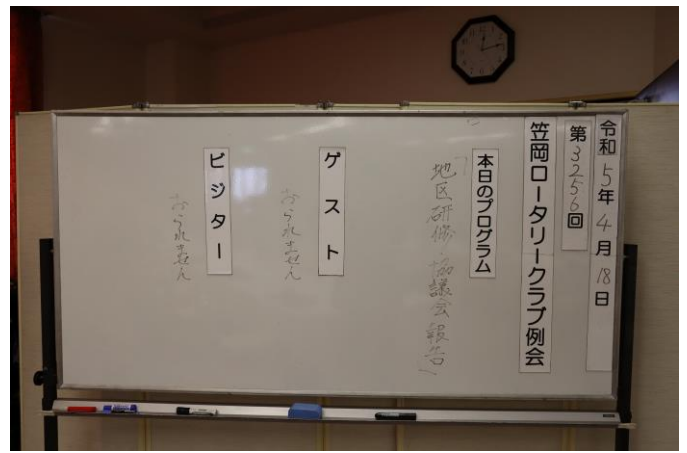 令和5年4月18日
第3256回
笠岡ロータリークラブ例会
本日のプログラム
「地区研修・協議会報告」
ゲスト
おられません
ビジター
おられません